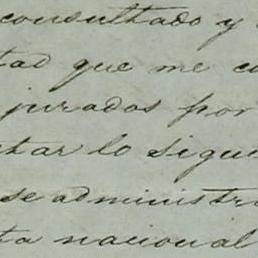 consultado y
tad que me co
jurados por
tar lo sigue
se administra
ta nacional